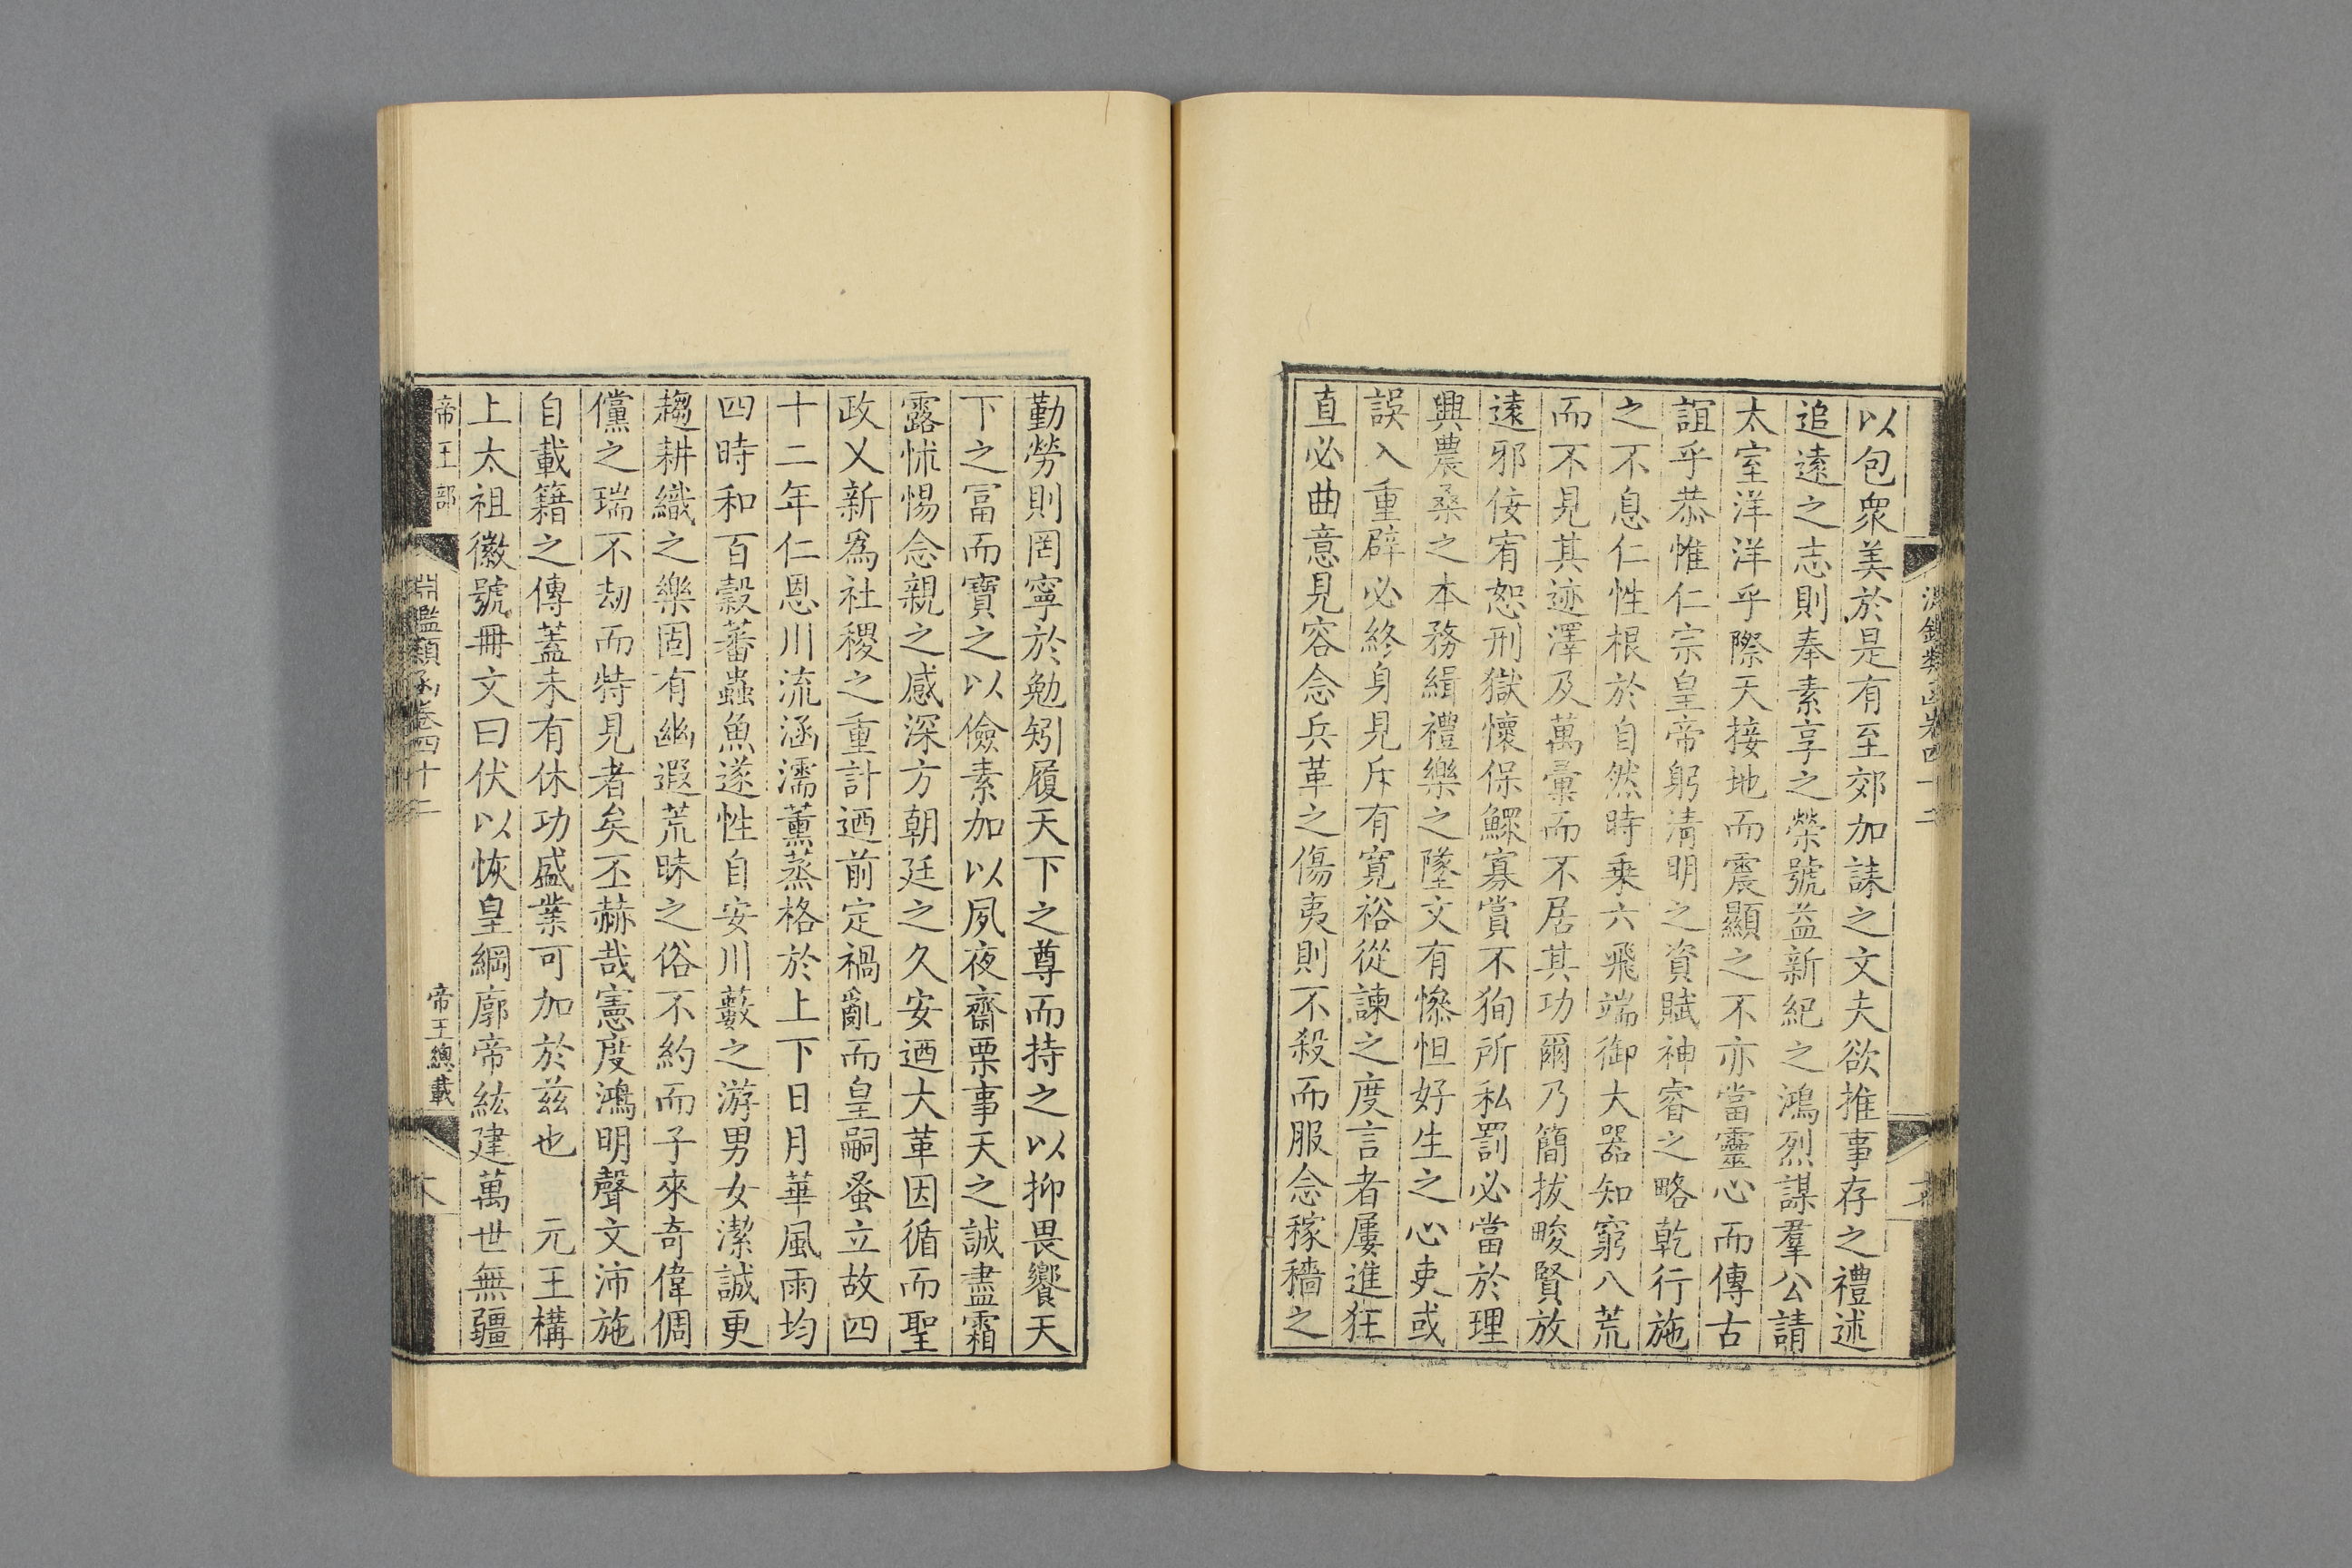 以包衆美於是有至郊加誄之文夫欲推事存之禮述
追遠之志則奉素享之榮號益新紀之鴻烈謀羣公請
太室洋洋乎際天接地而震顯之不亦當靈心而傳古
誼乎恭惟仁宗皇帝躬清明之資賦神睿之略乾行施
之不息仁性根於自然時乗六飛端御大器知窮八荒
而不見其迹澤及萬彚而不居其功爾乃簡拔畯賢放
遠邪佞宥恕刑獄懷保鰥寡賞不狥所私罰必當於理
興農桑之本務緝禮樂之墜文有慘怛好生之心吏或
誤入重辟必終身見斥有寛裕從諫之度言者屢進狂
直必曲意見容念兵革之傷夷則不殺而服念稼穡之
勤勞則罔寧於勉矧履天下之尊而持之以抑畏饗天
下之富而寶之以儉素加以夙夜齋栗事天之誠盡霜
露怵惕念親之感深方朝廷之久安迺大革因循而聖
政乂新爲社稷之重計迺前定禍亂而皇嗣蚤立故四
十二年仁恩川流涵濡薫蒸格於上下日月華風雨均
四時和百穀蕃蟲魚遂性自安川藪之游男女潔誠更
趨耕織之樂固有幽遐荒昧之俗不約而子來奇偉倜
儻之瑞不劫而特見者矣丕赫哉憲度鴻明聲文沛施
自載籍之傳蓋未有休功盛業可加於兹也 元王構
上太祖徽號冊文曰伏以恢皇綱廓帝紘建萬世無疆
帝王部
淵鑑類函卷四十二
帝王總載